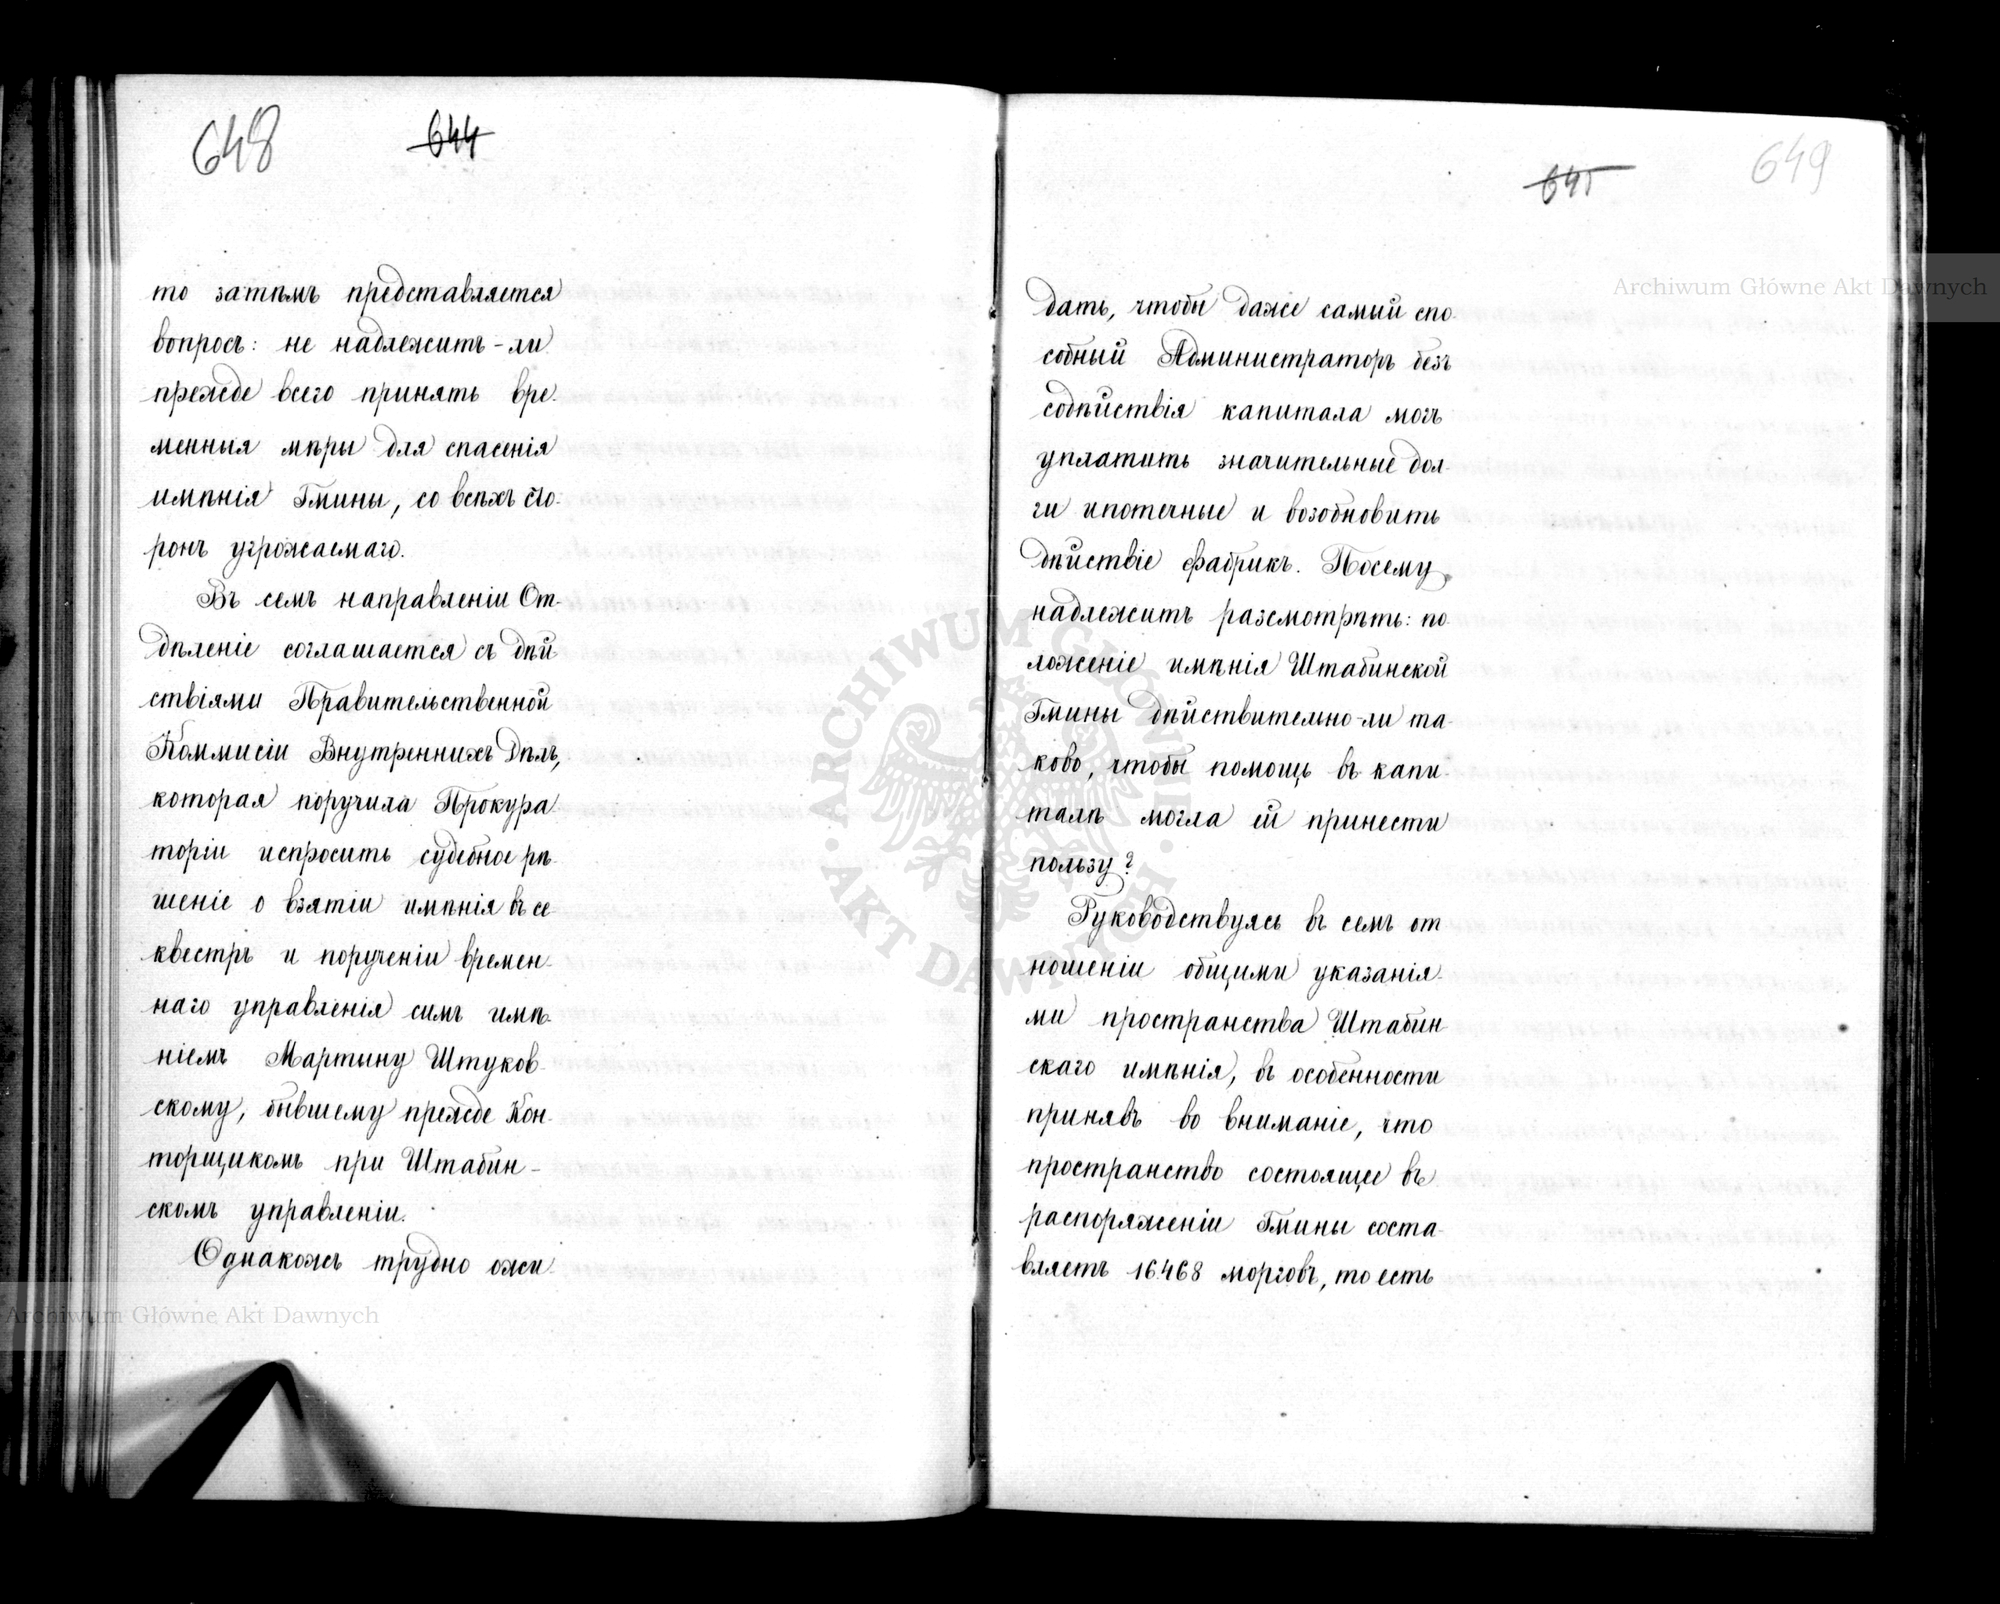 648
644
то затѣмъ представляется
вопросъ: не надлежитъ-ли
прежде всего принять вре-
менныя мѣры для спасенія
имѣнія Гмины, со всѣхъ сто-
ронъ угрожаемаго.
Въ семъ направленіи От-
дѣленіе соглашается съ дѣй
ствіями Правительственной
Коммисіи Внутреннихъ Дѣлъ,
которая поручила Прокура-
торіи испросить судебное рѣ-
шеніе о взятіи имѣнія въ се-
квестръ и порученіи времен-
наго управленія симъ имѣ-
ніемъ Мартину Штуков-
скому, бывшему прежде Кон-
торщикомъ при Штабин-
скомъ управленіи.
Однакожъ трудно ожи-
645
649
дать, чтобы даже самый спо-
собный Администраторъ безъ
содѣйствія капитала могъ
уплатить значительные дол-
ги ипотечные и возобновить
дѣйствіе фабрикъ. Посему
надлежитъ разсмотрѣть: по-
ложеніе имѣнія Штабинской
Гмины дѣйствительно-ли та-
ково, чтобы помощь въ капи-
талѣ могла ей принести
пользу?
Руководствуясь въ семъ от
ношеніи общими указанія-
ми пространства Штабин-
скаго имѣнія, въ особенности
принявъ во вниманіе, что
пространство состоящее въ
распоряженіи Гмины соста-
вляетъ 16468 морговъ, то есть
Archiwum Główne Akt Dawnych
Archiwum Główne Akt Dawnych
ARCHIWUM GŁÓWNE
AKT DAWNYCH